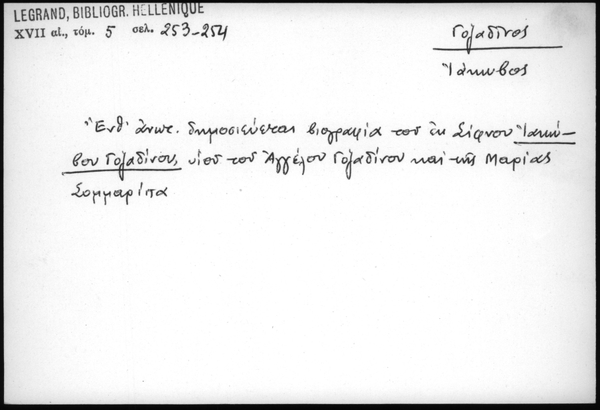 LEGRAND, BIBLIOGR. HELLÉNIQUE
XVII αἰ., τόμ. 5 σελ. 253-254
Γοζαδῖνος
Ἰάκωβος
Ἔνθ' ἀνωτ. δημοσιεύεται βιογραφία τοῦ ἐκ Σίφνου Ἰακώ-
βου Γοζαδίνου, υἱοῦ τοῦ Ἀγγέλου Γοζαδίνου καὶ τῆς Μαρίας
Σομμαρίπα